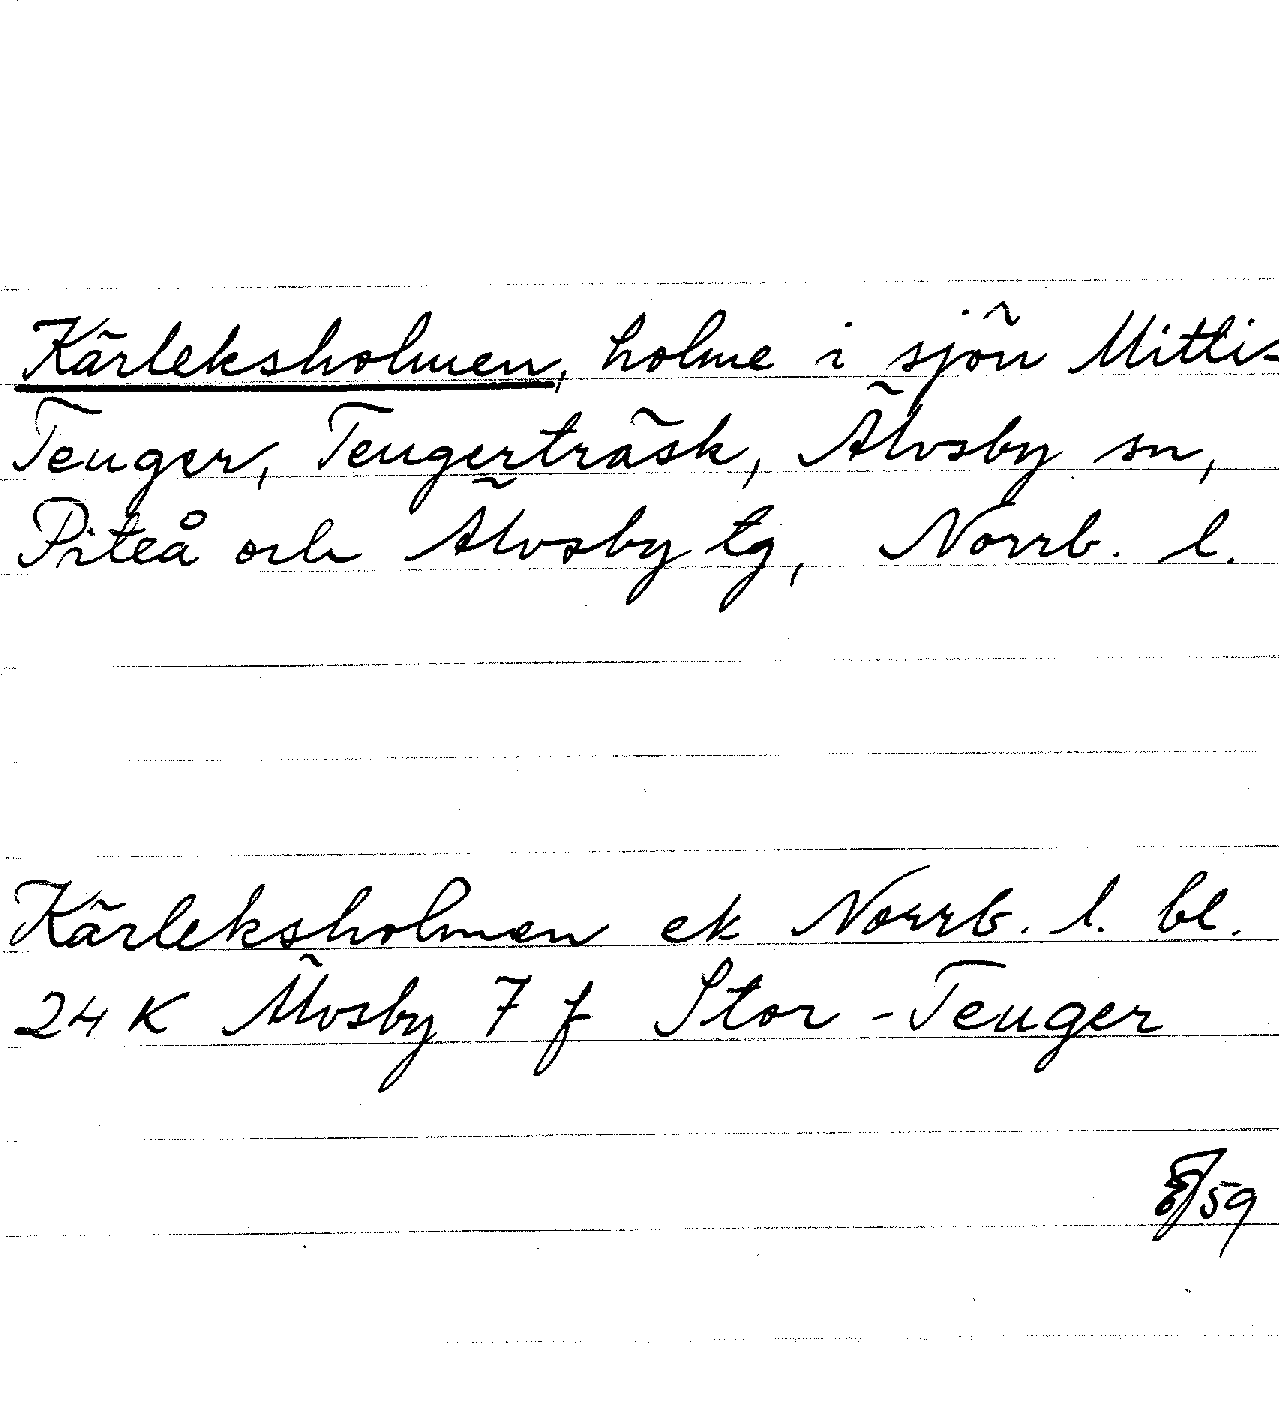 Kärleksholmen, holme i sjön Mitti-
Teuger, Teugerträsk, Älvsby sn,
Piteå och Älvsby tg, Norrb. l.
Kärleksholmen ek Norrb. l. bl.
24 K Älvsby 7 f Stor-Teuger
/59